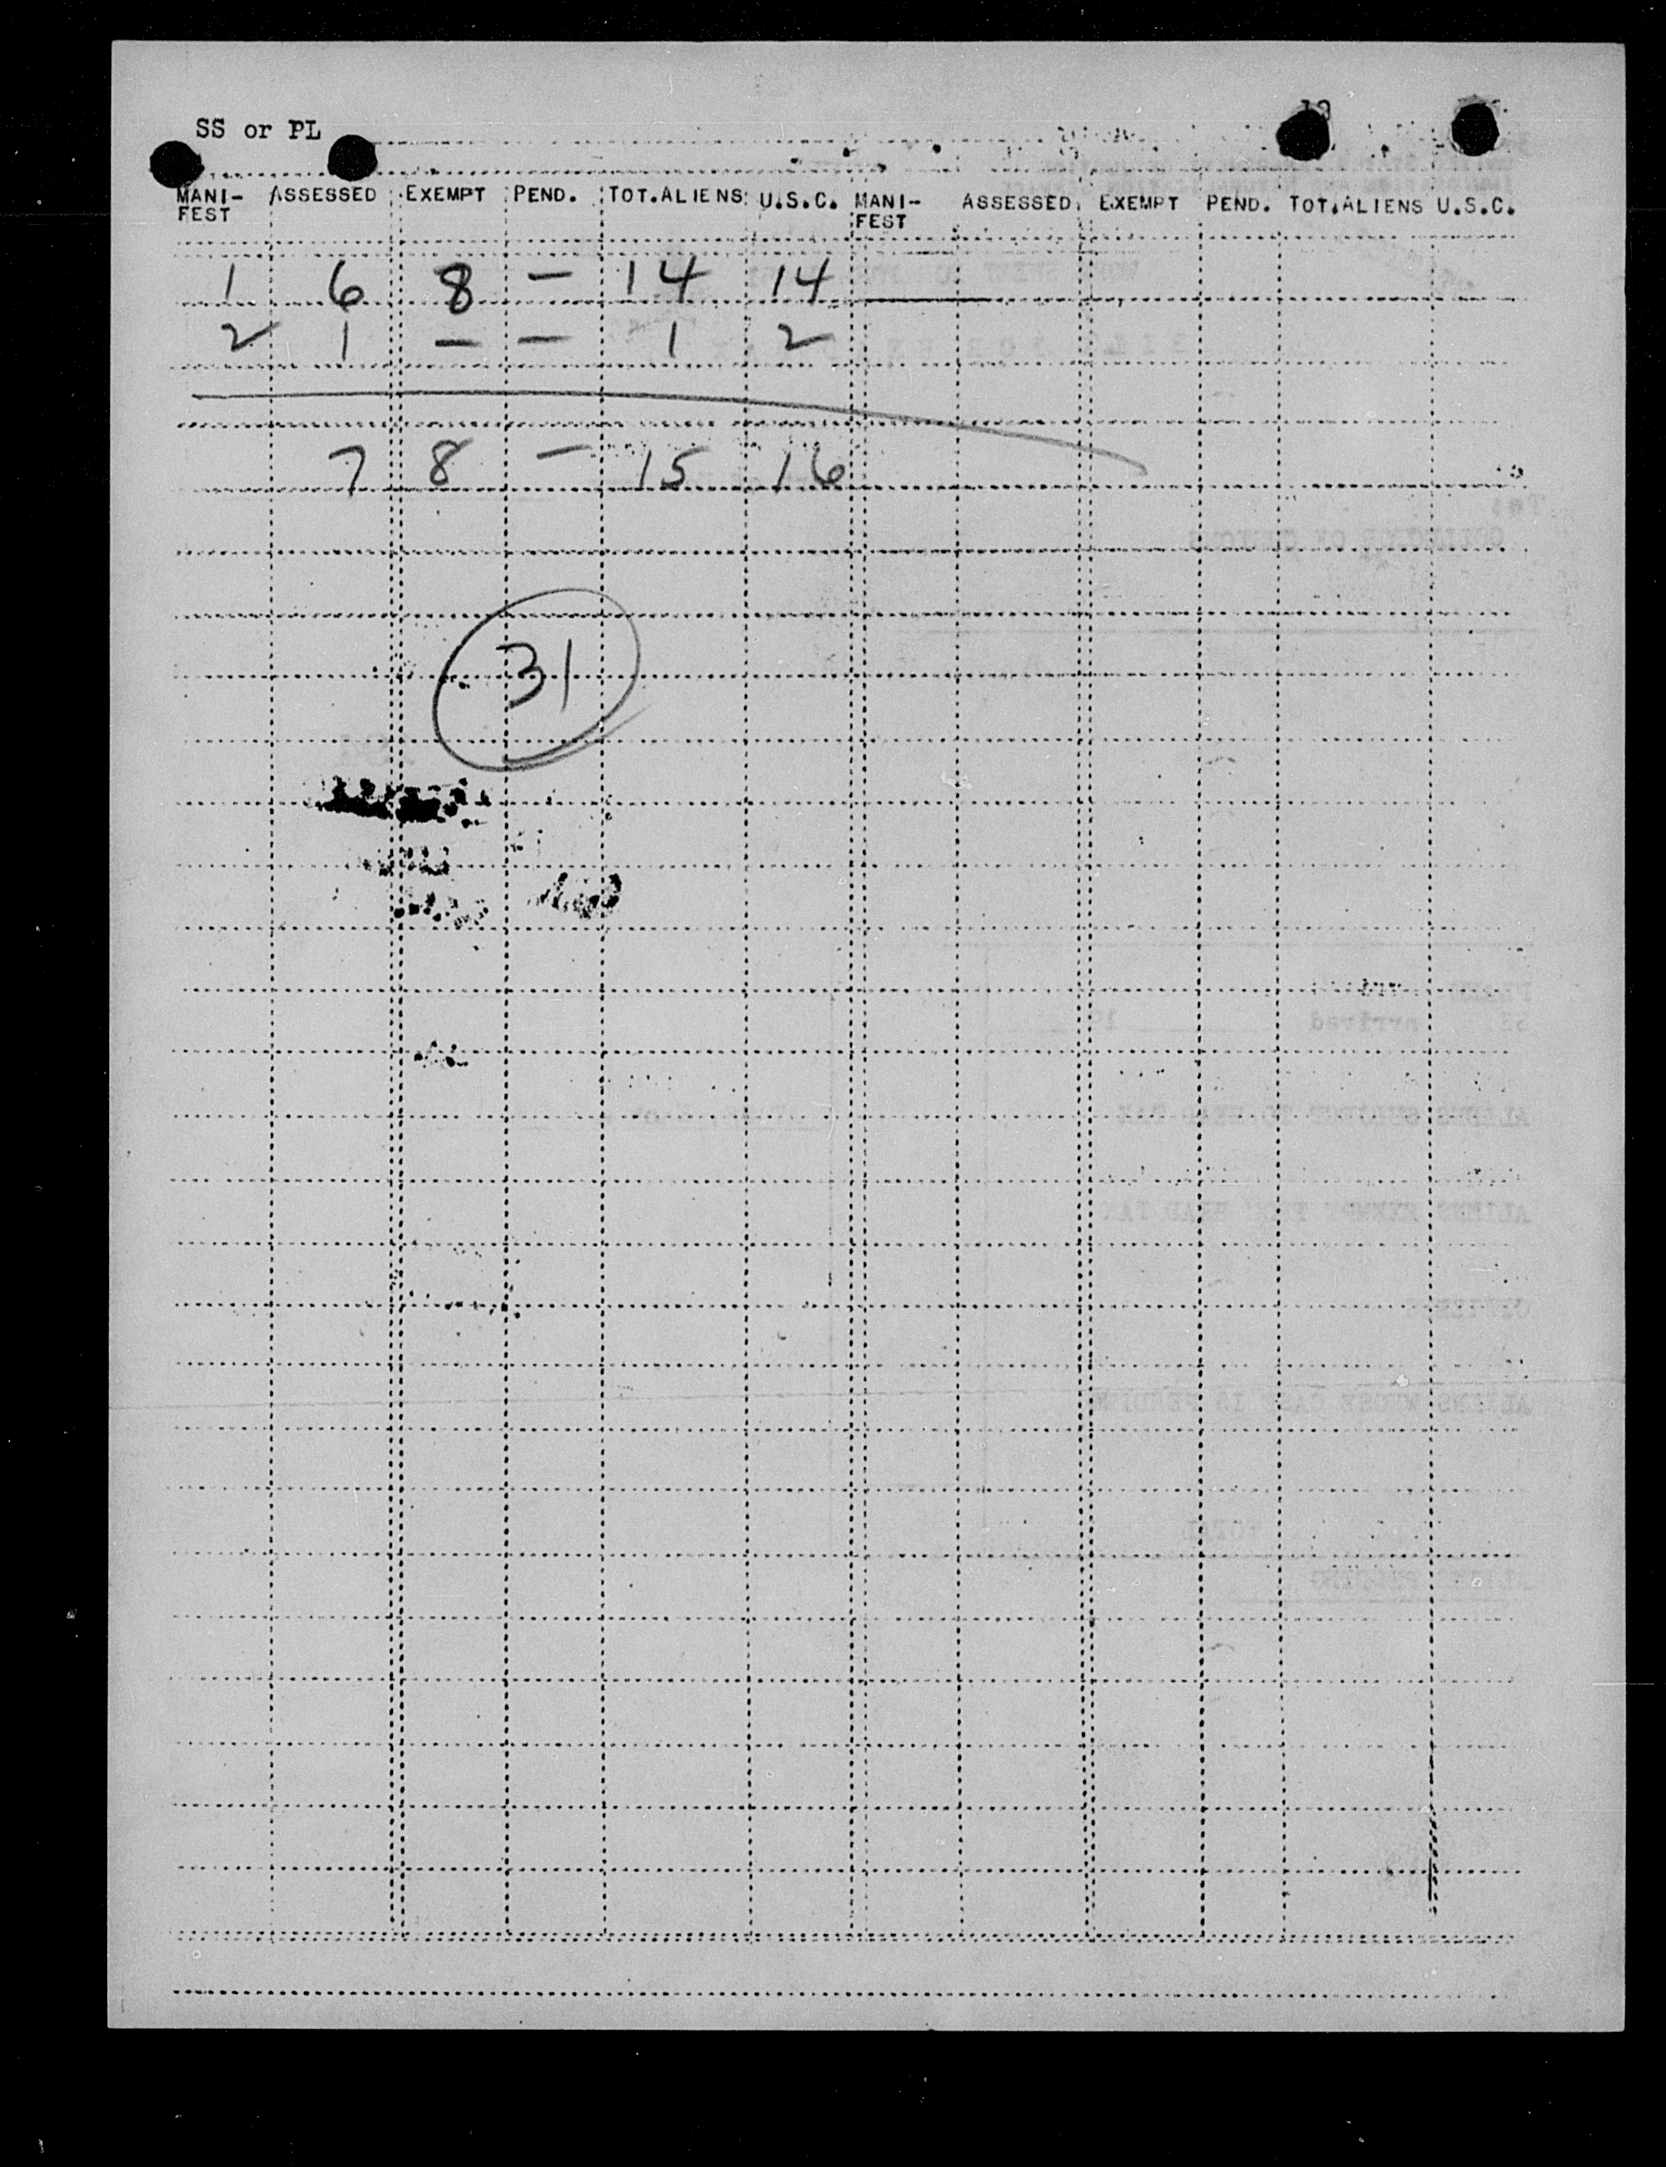 19
SS or PL
MANI- ASSESSED EXEMPT PEND. TOT.ALIENS U.S.C. MANI- ASSESSED EXEMPT PEND. TOT.ALIENS U.S.C.
FEST FEST
1 6 8 - 14 14
2 1 - - 1 2
7 8 - 15 16
31